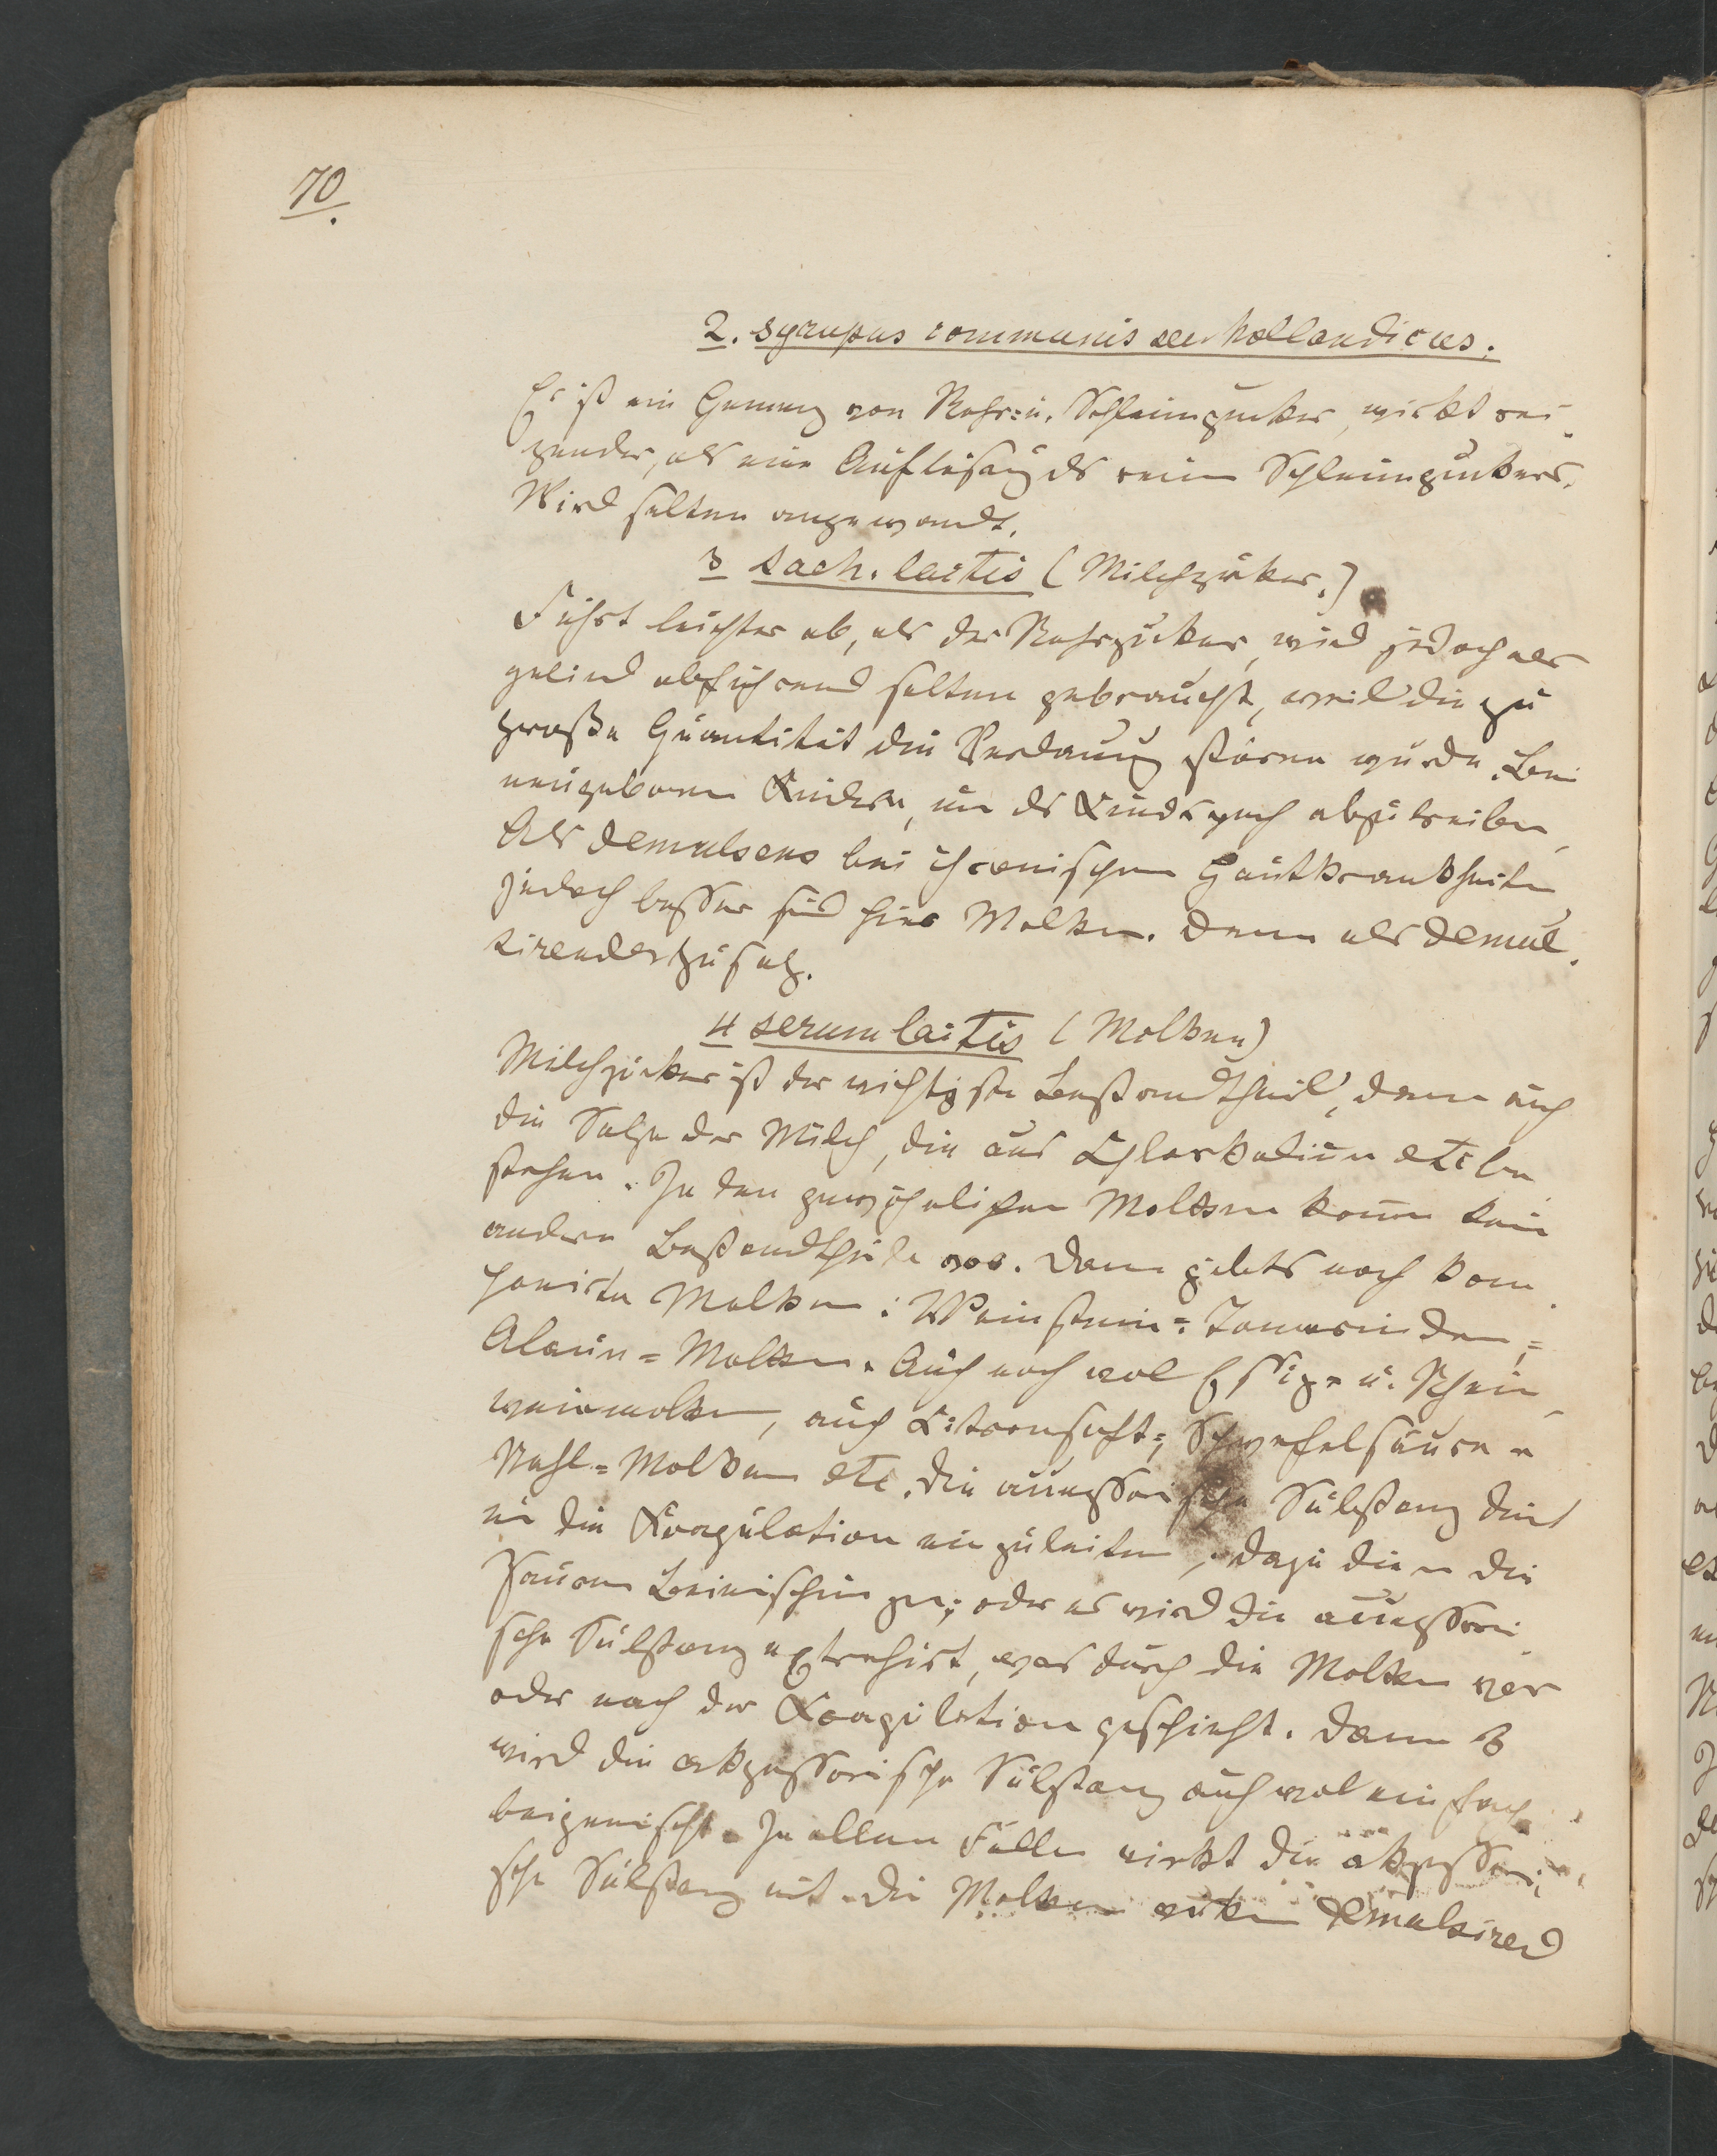 70.
2. Syrupus communis seu hollandicus.
Es ist ein Gemeng von Rohr- u. Schleimzucker, wirkt rei-
zender, als eine Auflösung ds reinen Schleimzuckers.
Wird selten angewandt.
3 Sach. lactis (Milchzuker.)
Führt leichter ab, als der Rohrzucker, wird jedoch als
gelind abführend selten gebraucht, weil die zu
große Quantität die Verdauung stören würde. Bei
neugebornen Kindern, um ds Kindspech abzutreiben,
Als demulsens bei chronischen Hautkrankheiten
jedoch besser sind hier Molken. Dann als demul-
sirender Zusatz.
4 serum lactis (Molken)
Milchzucker ist der wichtigste Bestandtheil, dann auch
die Salze der Milch, die aus Chlorkalium etc be-
stehen. In den gewöhnlichen Molken komen kein
andere Bestandtheile vor. Dann gibts noch kom-
ponirte Molken: Weinstein- Tamarinden-,
Alaun- Molken. Auch noch wol Essig- u. Rhein-
weinmolken, auch Citronsaft-, Schwefelsäure-
Stahl-Molken etc. Die accessorische Substanz dient
um die Koagulation einzuleiten, dazu dienen die
sauren Beimischungen; oder es wird die accessori-
sche Substanz extrahirt, was durch die Molken vor
oder nach der Koagulation geschieht. Dann
wird die akzessorische Substanz auch wol einfach
beigemischt. In allen Fällen wirkt die akzessori-
sche Substanz mit. Die Molken wirken demulsirend